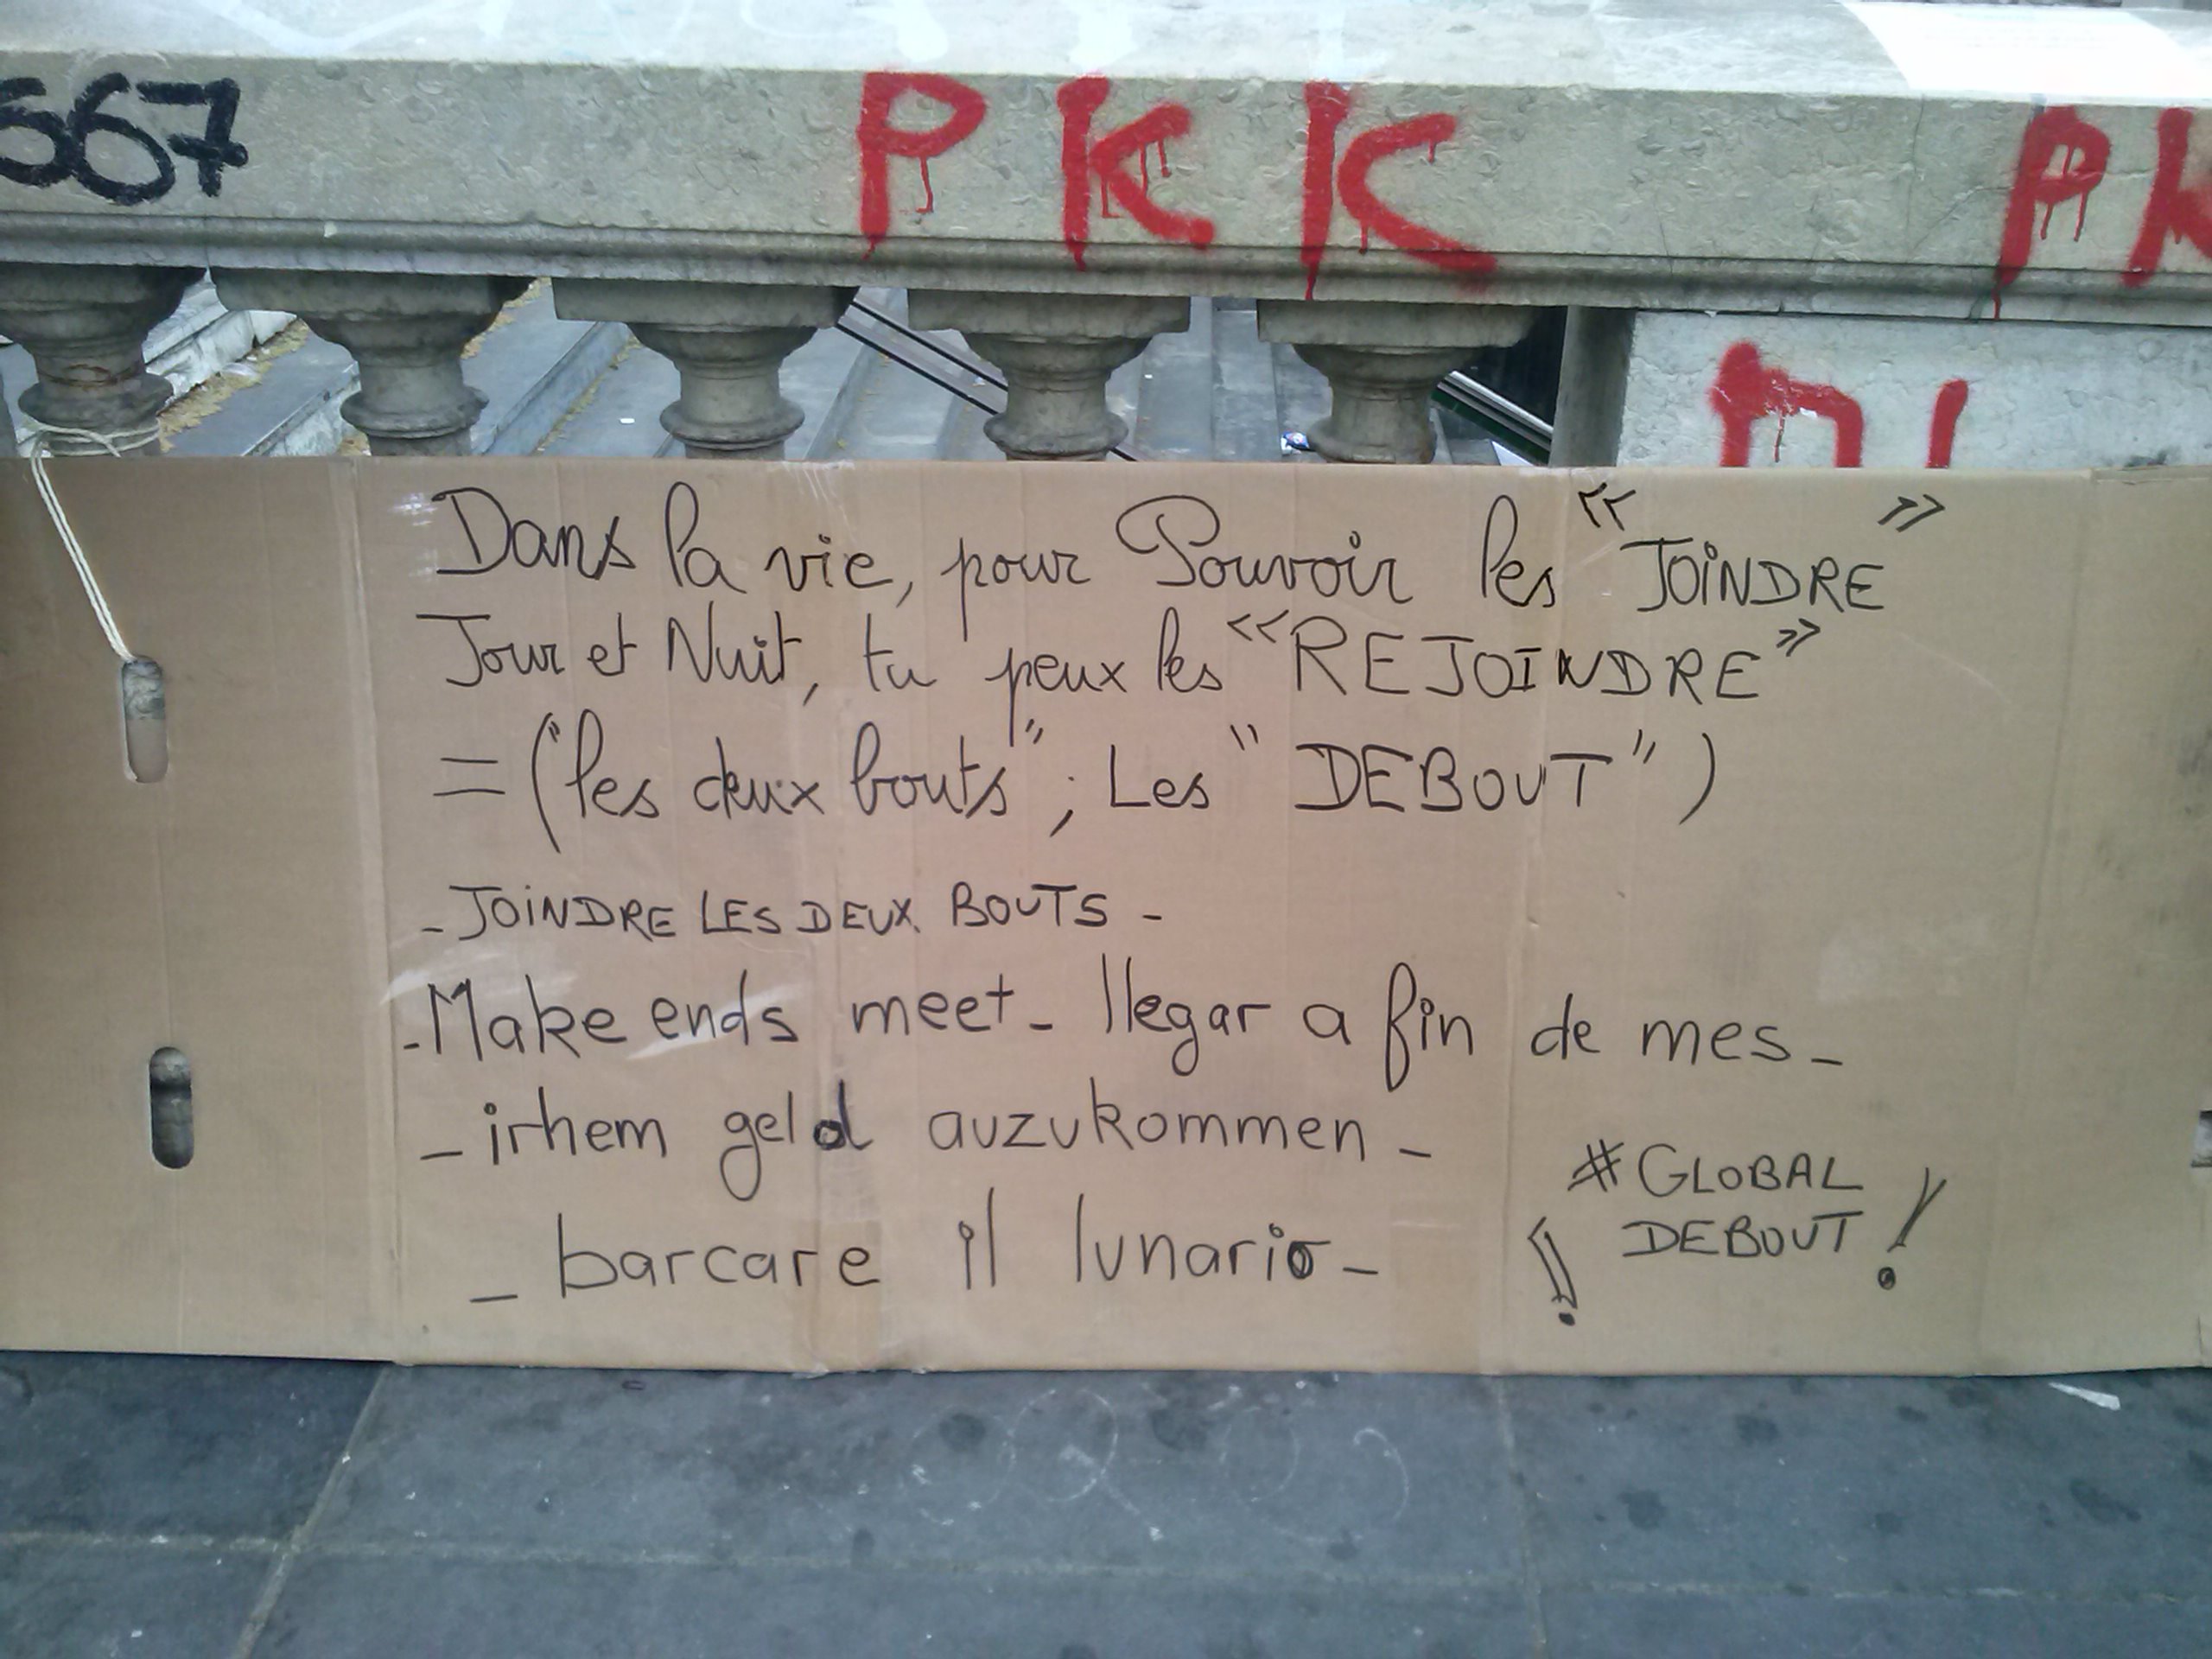 667
PKK
PK
Dans la vie, pour Pouvoir les << JOINDRE >>
Jour et Nuit, tu peux les << REJOINDRE >>
= ("les deux bouts" ; Les "DEBOUT")
- JOINDRE LES DEUX BOUTS -
- Make ends meet - llegar a fin de mes -
- irhem geld auzukommen -
- barcare il lunario -
# GLOBAL
DEBOUT !